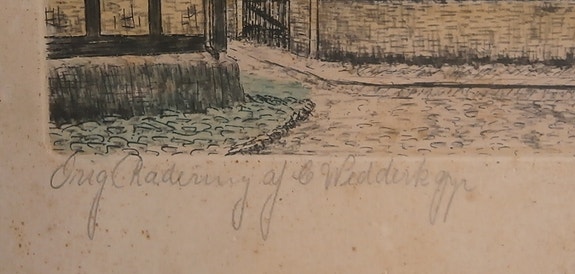 Orig Radering af C Wedderkopp